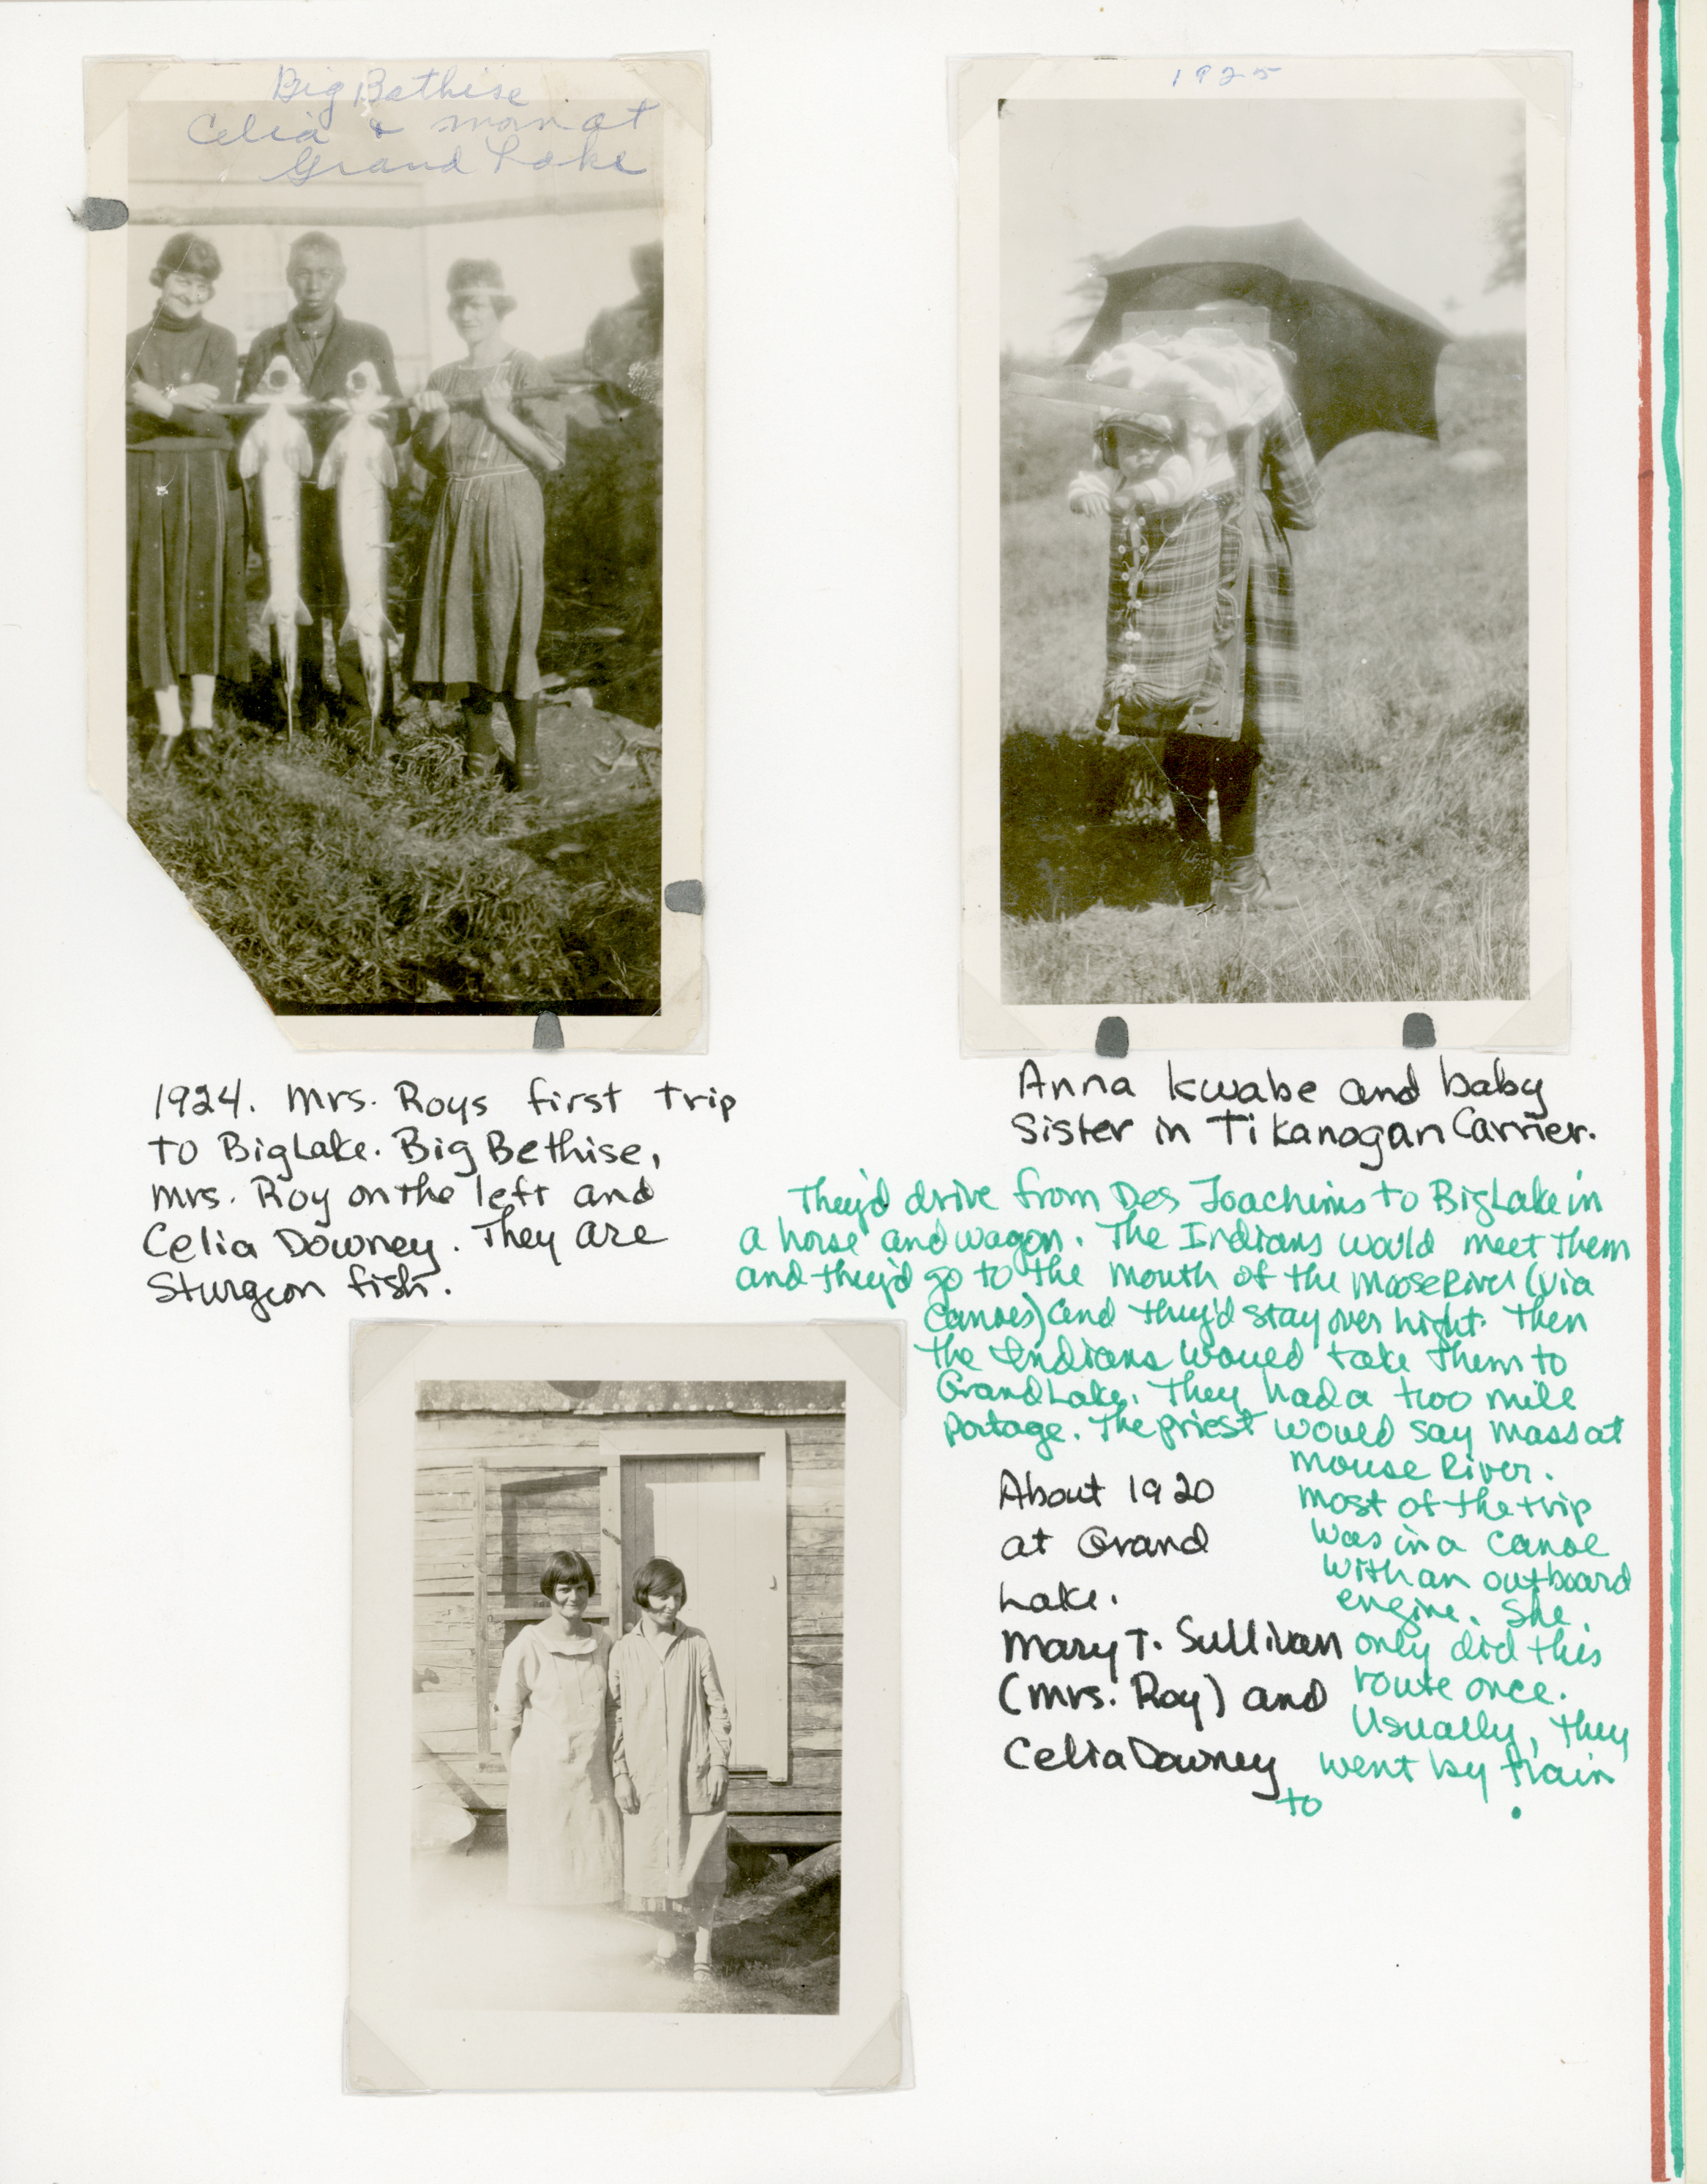 Big Bethise
Celia & mom at
Grand Lake
1925
1924. Mrs. Roys first trip
to Big Lake. Big Bethise,
Mrs. Roy on the left and
Celia Downey. They are
Sturgeon fish.
Anna Kwabe and baby
Sister in Tikanogan Carrier.
They'd drive from Des Joachims to Big Lake in
a horse and wagon. The Indians would meet them
and they'd go to the mouth of the Moose River (via
canoes) and they'd stay over night. Then
the Indians would take them to
Grand Lake. They had a two mile
Portage. The priest would say mass at
Mouse River.
Most of the trip
was in a canoe
with an outboard
engine. She
only did this
route once.
Usually, they
went by train
to .
About 1920
at Grand
Lake.
Mary T. Sullivan
(Mrs. Roy) and
Celia Downey